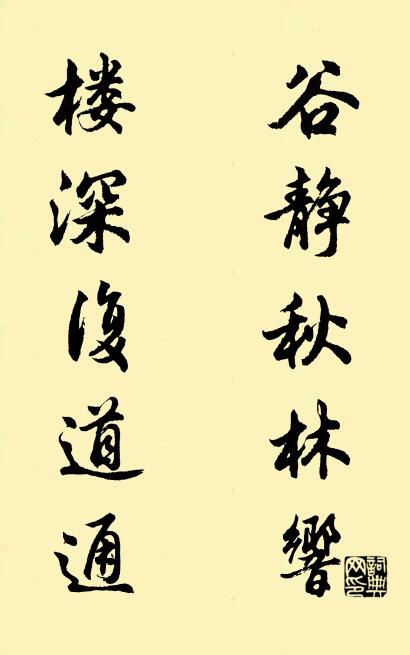 谷静秋林響
楼深復道通
詞典網印